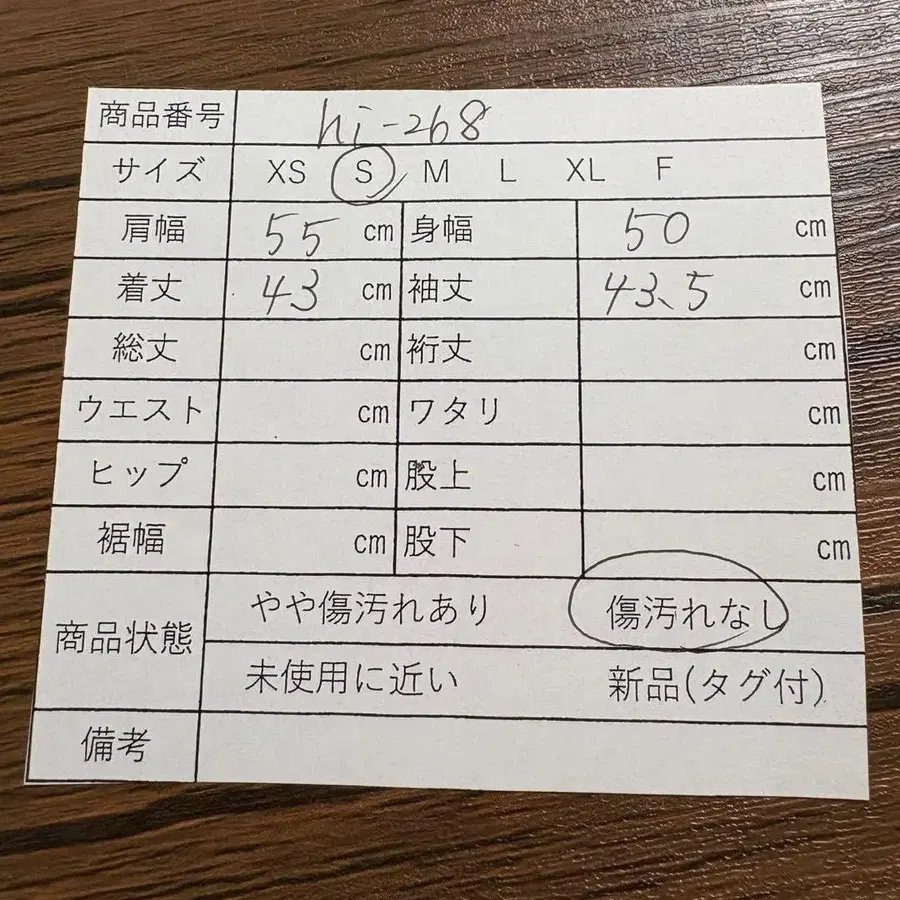 商品番号 hi-268
サイズ XS S M L XL F
肩幅 55 cm 身幅 50 cm
着丈 43 cm 袖丈 43.5 cm
総丈 cm 裄丈 cm
ウエスト cm ワタリ cm
ヒップ cm 股上 cm
裾幅 cm 股下 cm
商品状態 やや傷汚れあり 傷汚れなし
未使用に近い 新品(タグ付)
備考